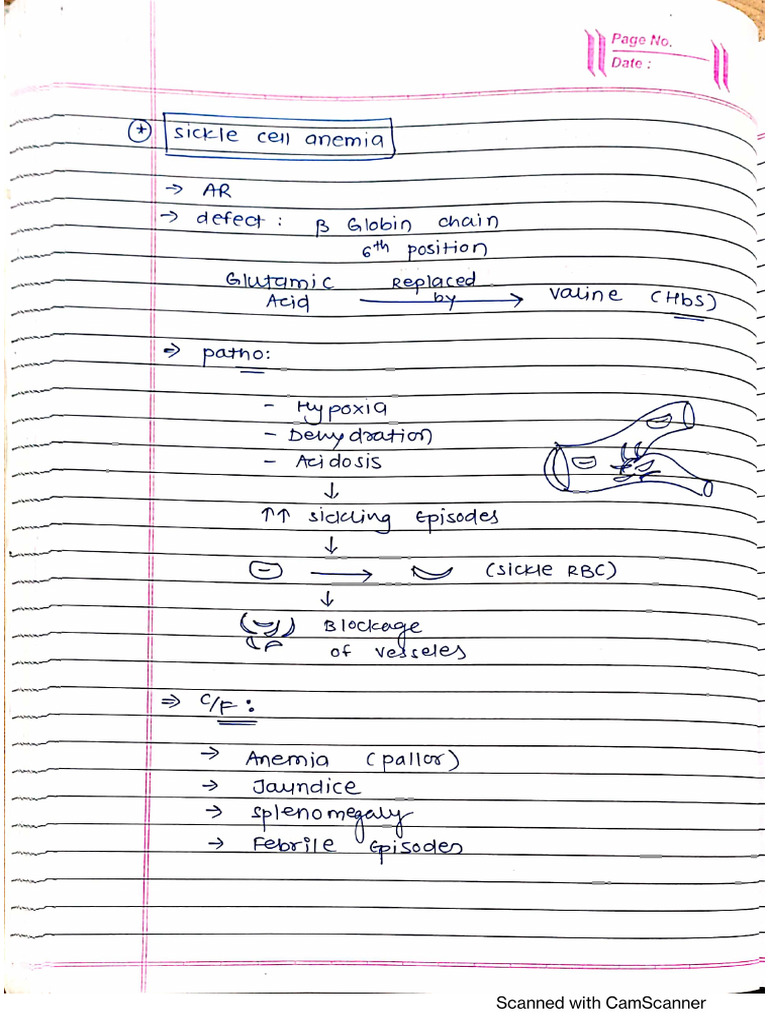 Page No.
Date :
* sickle cell anemia
→ AR
→ defect : β Globin chain
6th position
Glutamic Acid Replaced by → valine (HbS)
⇒ patho:
- Hypoxia
- Dehydration
- Acidosis
↓
↑↑ sickling Episodes
↓
→ (sickle RBC)
↓
Blockage
of vesseles
⇒ C/F :
→ Anemia (pallor)
→ Jaundice
→ splenomegaly
→ Febrile Episodes
Scanned with CamScanner